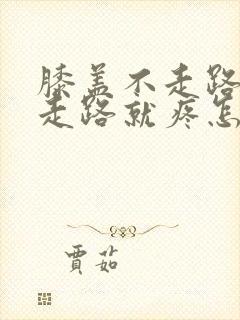 膝盖不走路
走路就疼怎
賈茹